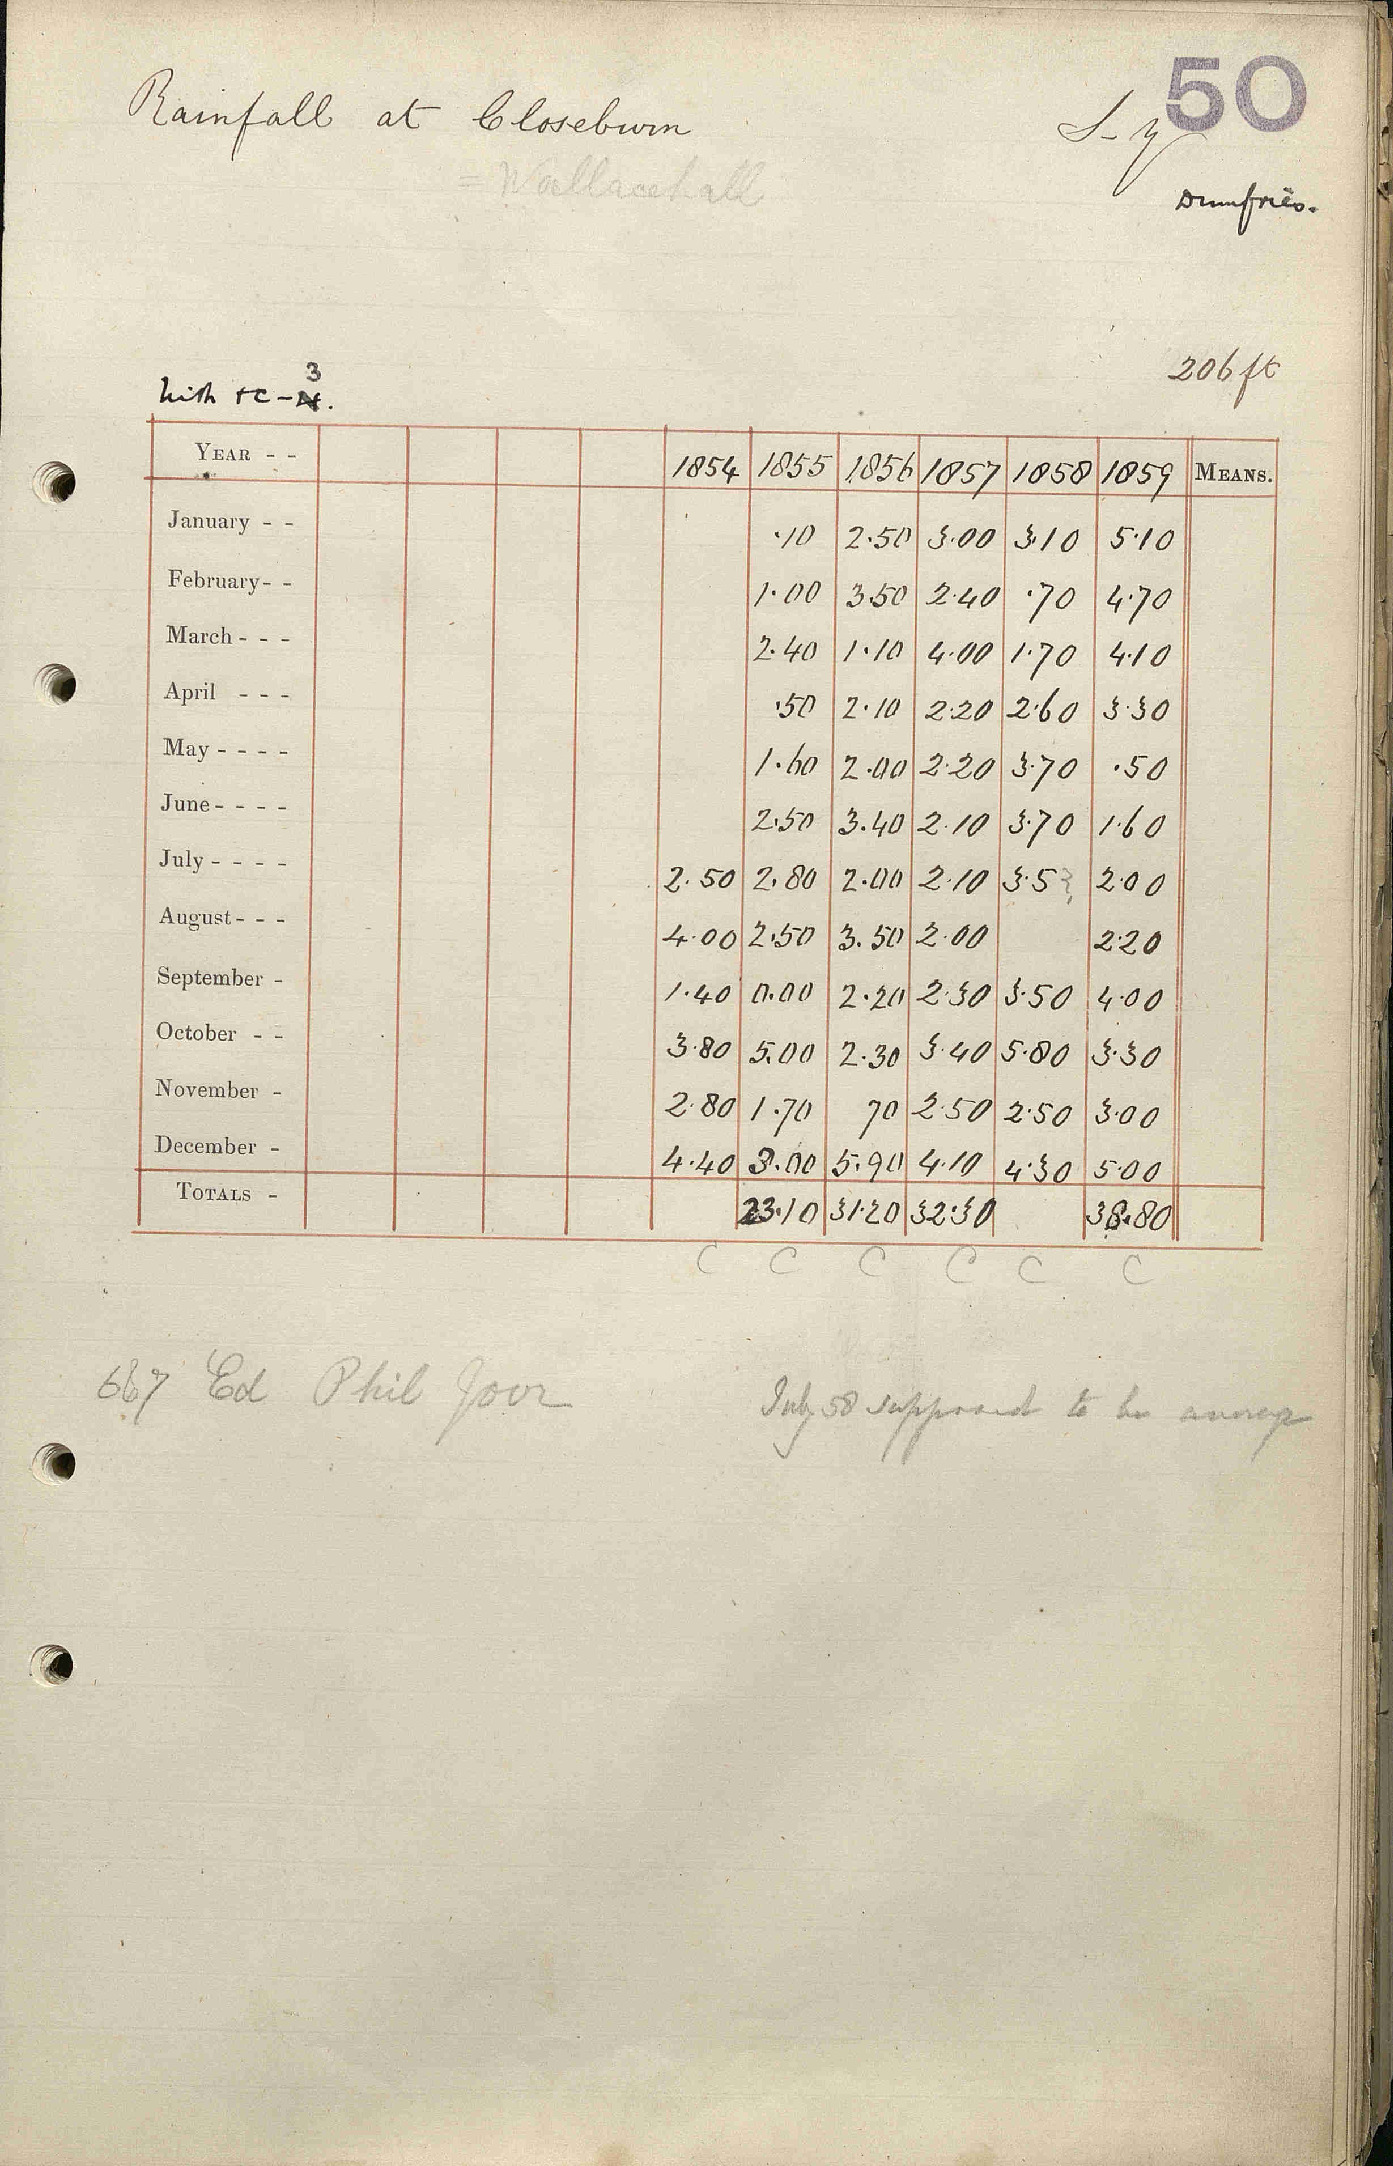 50
Rainfall at Closeburn
= Wallacehall
Dumfries.
206 ft
3
YEAR - - 1854 1855 1856 1857 1858 1859 MEANS.
January - - .10 2.50 3.00 3.10 5.10
February - - 1.00 3.50 2.40 .70 4.70
March - - - 2.40 1.10 4.00 1.70 4.10
April - - - .50 2.10 2.20 2.60 3.30
May - - - - 1.60 2.00 2.20 3.70 .50
June - - - - 2.50 3.40 2.10 3.70 1.60
July - - - - 2.50 2.80 2.00 2.10 3.5 ? 2.00
August - - - 4.00 2.50 3.50 2.00 2.20
September - 1.40 0.00 2.20 2.30 3.50 4.00
October - - 3.80 5.00 2.30 3.40 5.80 3.30
November - 2.80 1.70 70 2.50 2.50 3.00
December - 4.40 3.00 5.90 4.10 4.30 5.00
TOTALS - 23.10 31.20 32.30 38.80
C C C C C C
667 Ed Phil Jour
July 58 supposed to be average